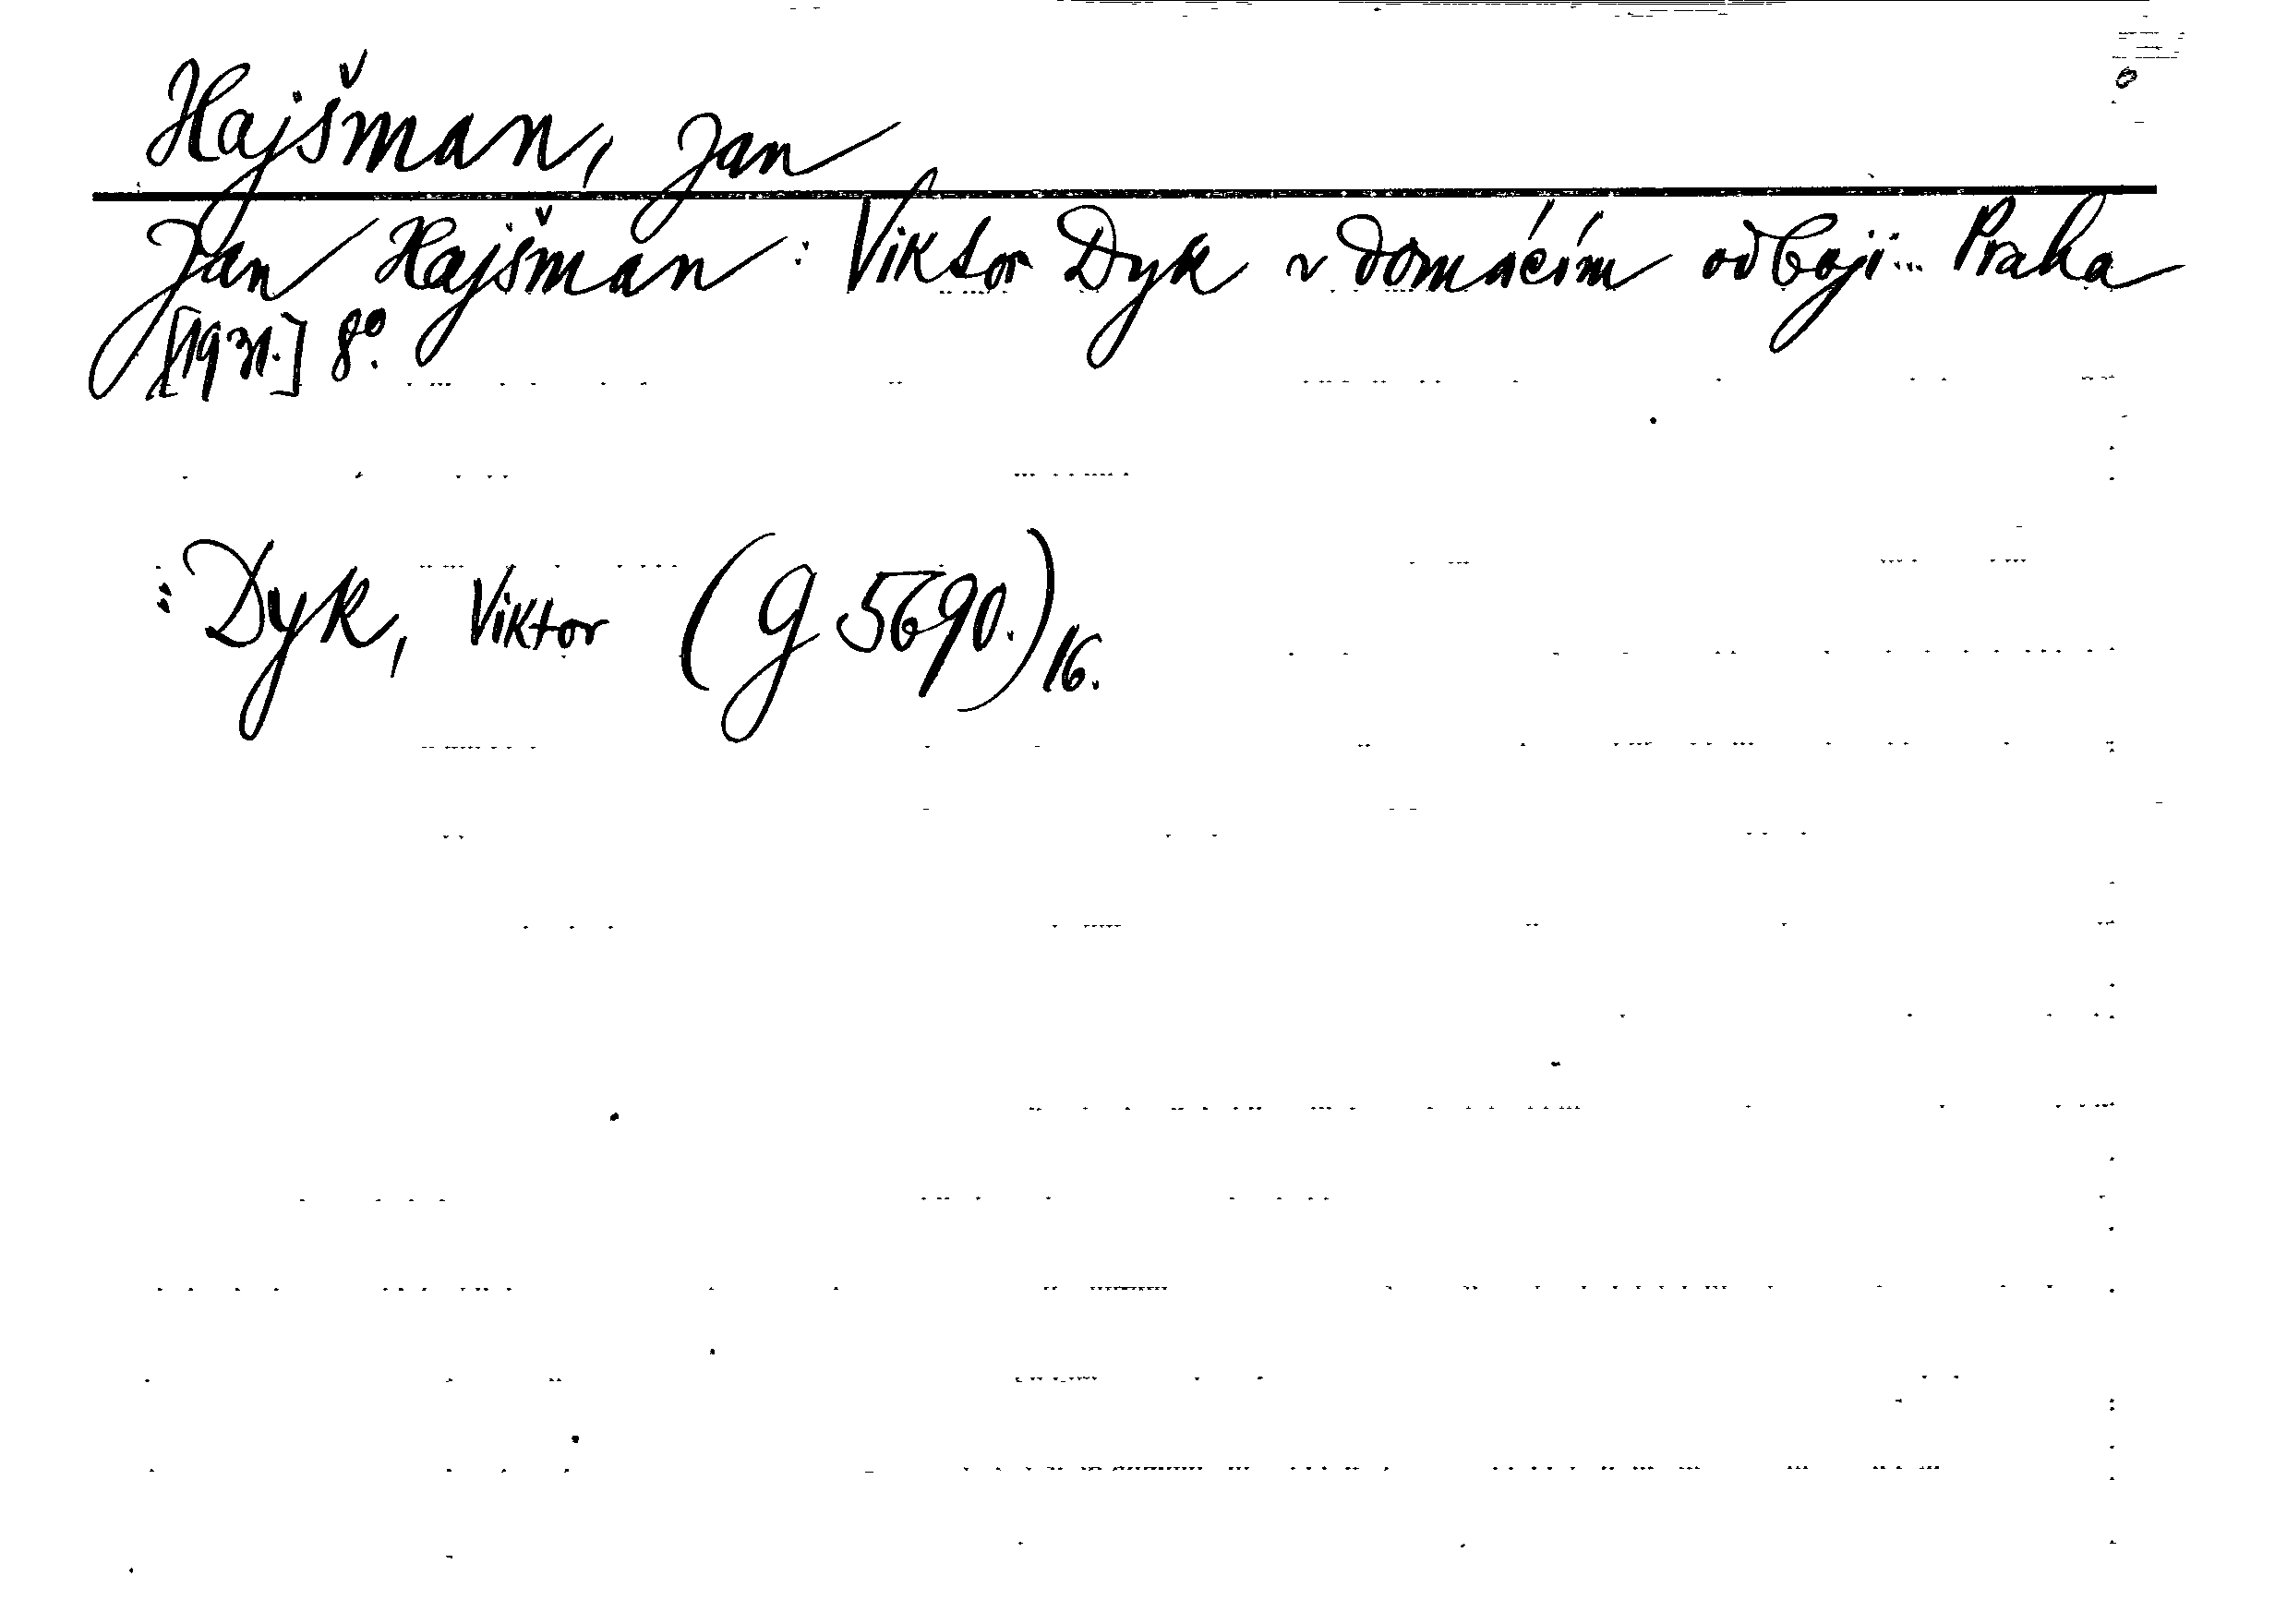 Hajšman, Jan
Jan Hajšman: Viktor Dyk v domácím odboji... Praha
[1931.] 8°.
: Dyk, Viktor (G 5690.) 16.